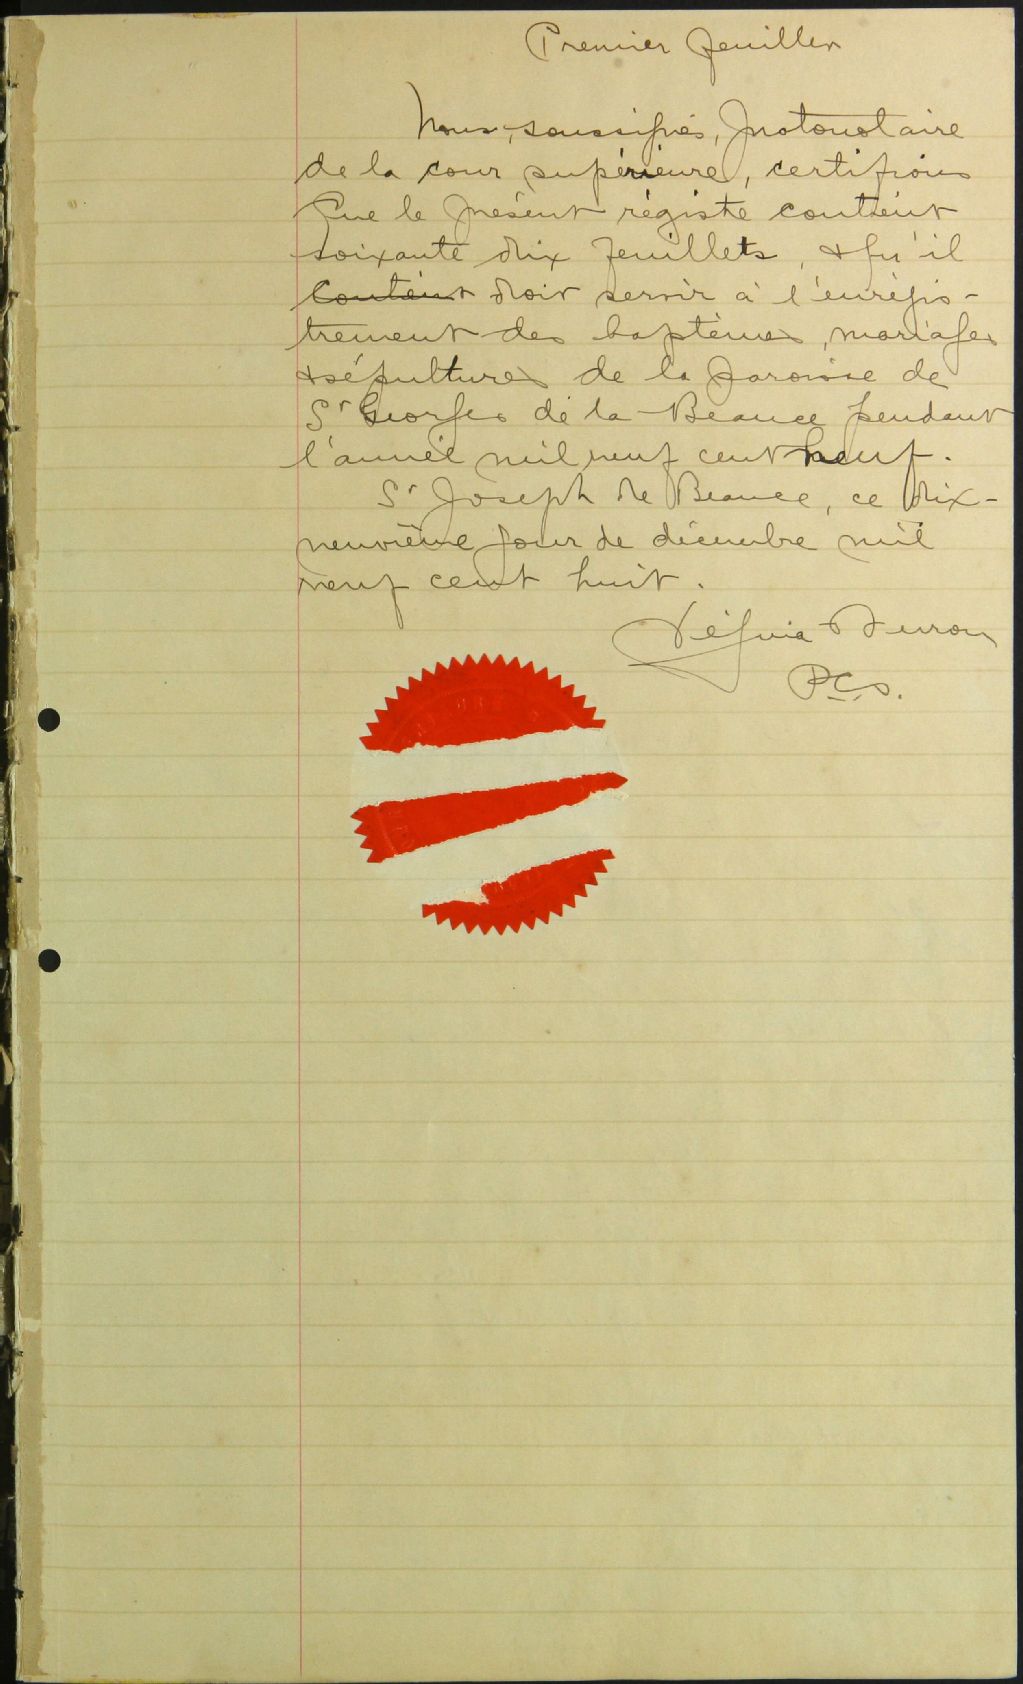 Premier feuillet
Nous, soussigné, protonotaire
de la cour supérieure, certifions
que le présent régistre contient
soixante dix feuillets, & qu'il
contient doit servir à l'enrégis-
trement des baptêmes, mariages
& sépultures de la paroisse de
St Georges de la Beauce pendant
l'année mil neuf cent neuf.
St Joseph de Beauce, ce dix-
neuvième jour de décembre mil
neuf cent huit.
P.C.S.